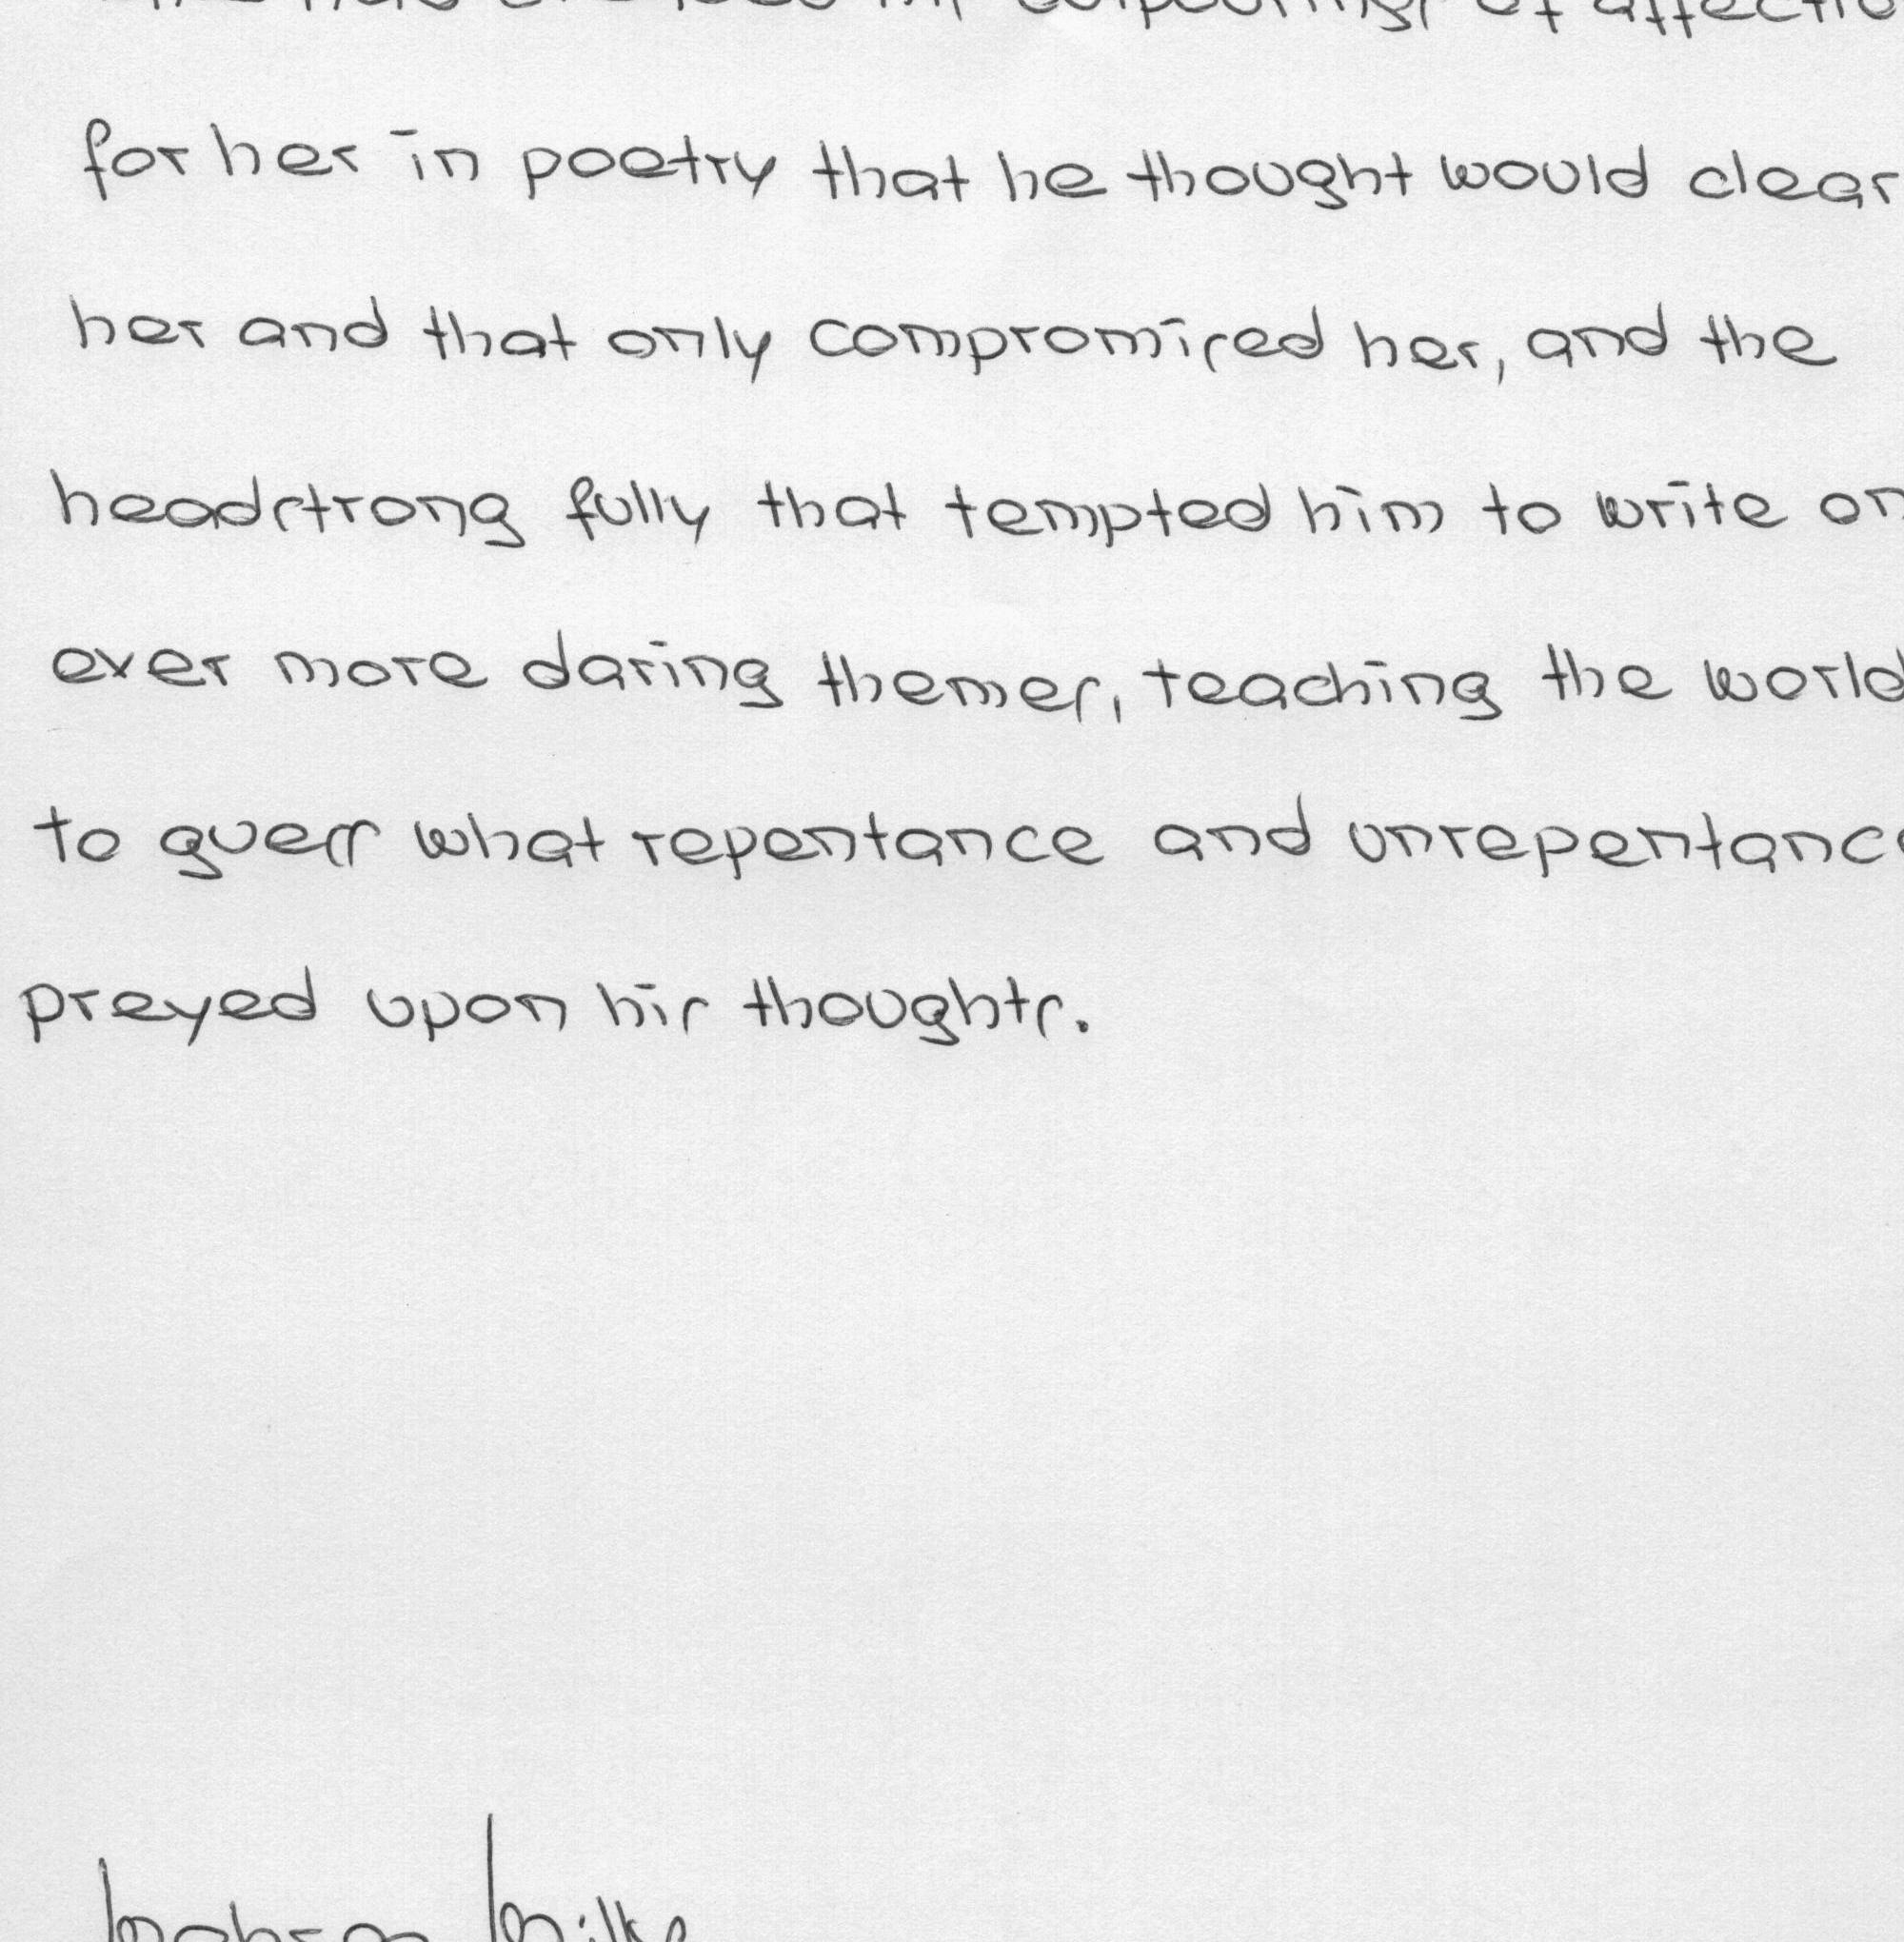 outpourings of affectio
for her in poetry that he thought would clear
her and that only compromised her, and the
headstrong fully that tempted him to write on
ever more daring themes, teaching the world
to guess what repentance and unrepentance
preyed upon his thoughts.